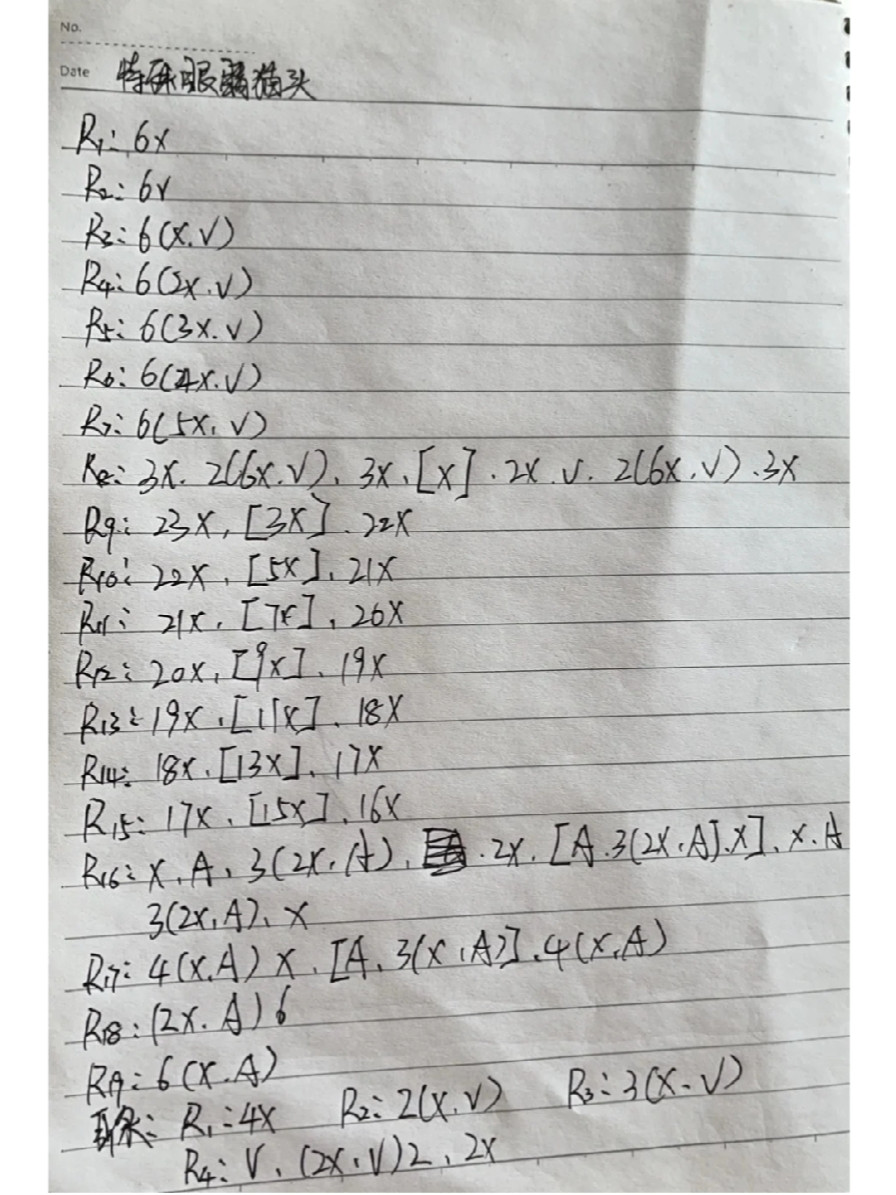 No.
Date 特殊眼猫头
R1: 6X
R2: 6V
R3: 6(X.V)
R4: 6(2X.V)
R5: 6(3X.V)
R6: 6(4X.V)
R7: 6(5X,V)
R8: 3X. 2(6X.V), 3X, [X]. 2X. V. 2(6X.V).3X
R9: 23X, [3X]. 22X
R10: 22X, [5X], 21X
R11: 21X, [7X], 20X
R12: 20X, [9X]. 19X
R13: 19X, [11X]. 18X
R14: 18X. [13X]. 17X
R15: 17X. [15X]. 16X
R16: X. A, 3(2X, A), .2X, [A.3(2X,A).X]. X.A
3(2X,A), X
R17: 4(X.A) X, [A, 3(X,A)].4(X,A)
R18: (2X. A)6
R19: 6(X.A)
R1: 4X R2: 2(X.V) R3: 3(X-V)
R4: V, (2X,V)2, 2X